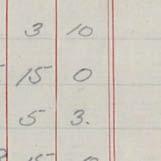 3 10
15 0
5 3.